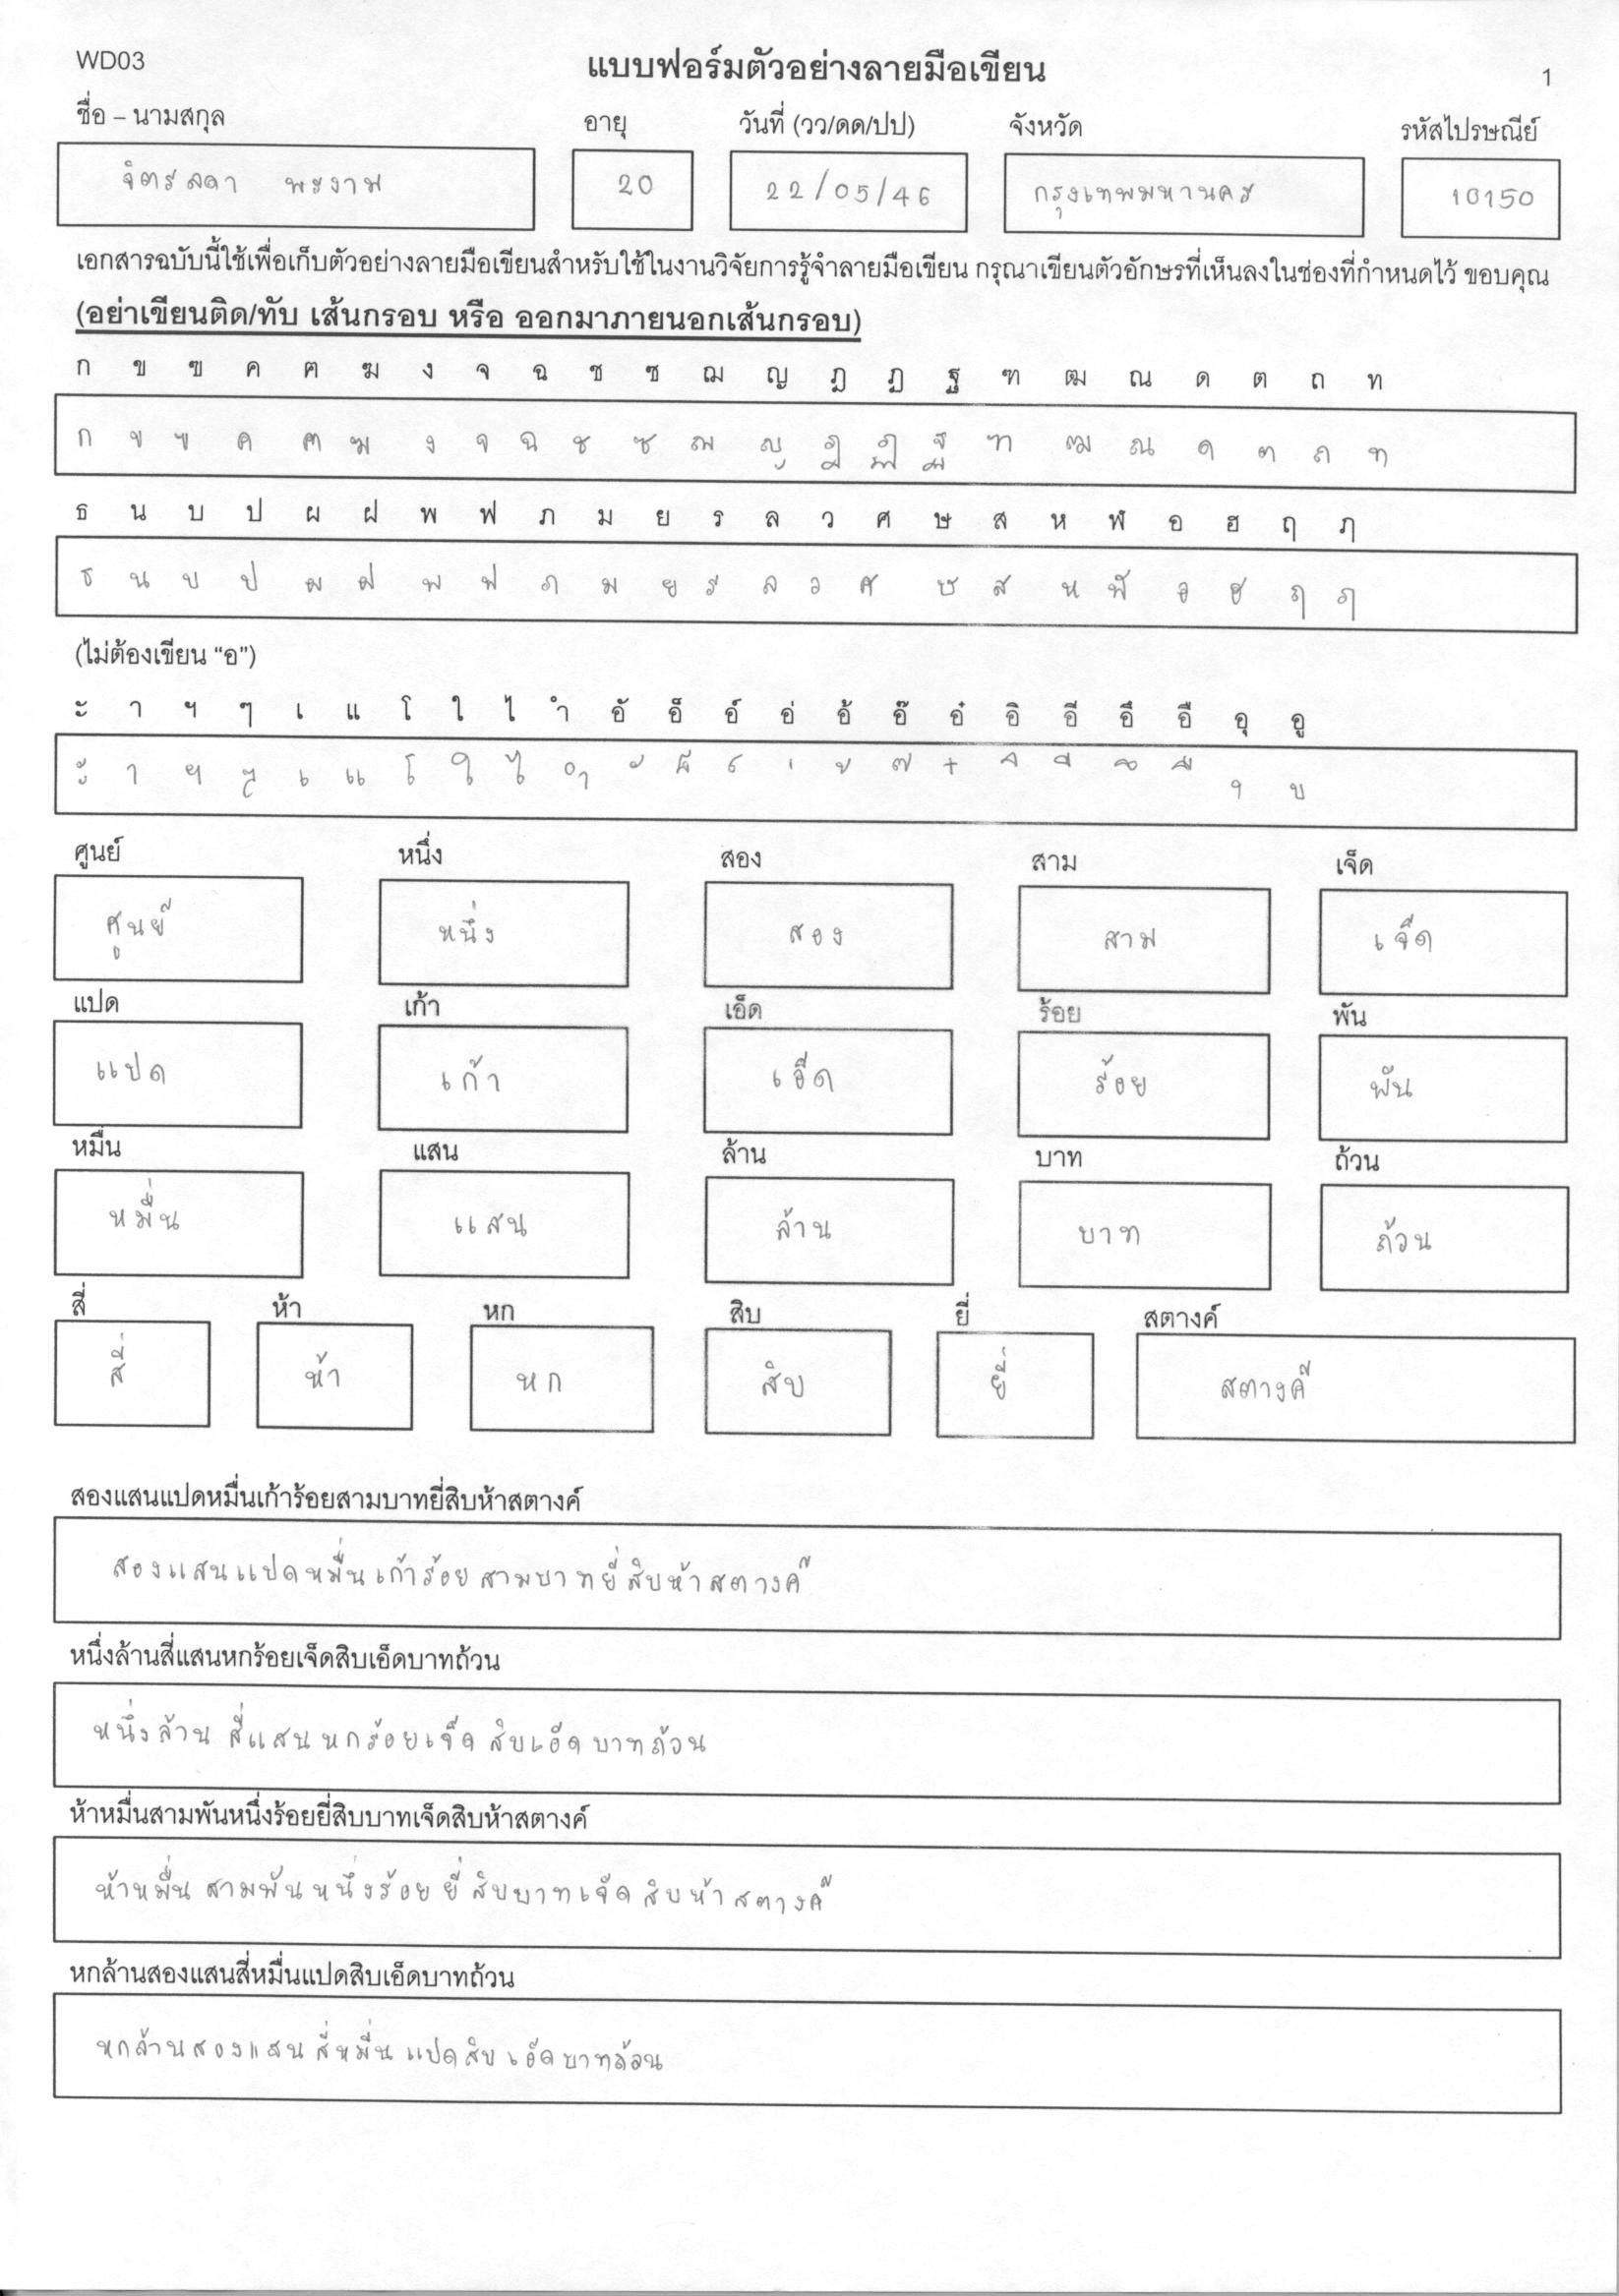 WD03
แบบฟอร์มตัวอย่างลายมือเขียน
1
ชื่อ – นามสกุล อายุ วันที่ (วว/ดด/ปป) จังหวัด รหัสไปรษณีย์
จิตรลดา พรงาม 20 22/05/46 กรุงเทพมหานคร 10150
เอกสารฉบับนี้ใช้เพื่อเก็บตัวอย่างลายมือเขียนสำหรับใช้ในงานวิจัยการรู้จำลายมือเขียน กรุณาเขียนตัวอักษรที่เห็นลงในช่องที่กำหนดไว้ ขอบคุณ
(อย่าเขียนติด/ทับ เส้นกรอบ หรือ ออกมาภายนอกเส้นกรอบ)
ก ข ฃ ค ฅ ฆ ง จ ฉ ช ซ ฌ ญ ฎ ฏ ฐ ฑ ฒ ณ ด ต ถ ท
ก ข ฃ ค ฅ ฆ ง จ ฉ ช ซ ฌ ญ ฎ ฏ ฐ ฑ ฒ ณ ด ต ถ ท
ธ น บ ป ผ ฝ พ ฟ ภ ม ย ร ล ว ศ ษ ส ห ฬ อ ฮ ฤ ฦ
ธ น บ ป ผ ฝ พ ฟ ภ ม ย ร ล ว ศ ษ ส ห ฬ อ ฮ ฤ ฦ
(ไม่ต้องเขียน “อ”)
ะ า ฯ ๆ เ แ โ ใ ไ ำ อั อ็ อ์ อ่ อ้ อ๊ อ๋ อิ อี อึ อื อุ อู
ะ า ฯ ๆ เ แ โ ใ ไ ำ ั ็ ์ ่ ้ ๊ ๋ ิ ี ึ ื ุ ู
ศูนย์ หนึ่ง สอง สาม เจ็ด
ศูนย์ หนึ่ง สอง สาม เจ็ด
แปด เก้า เอ็ด ร้อย พัน
แปด เก้า เอ็ด ร้อย พัน
หมื่น แสน ล้าน บาท ถ้วน
หมื่น แสน ล้าน บาท ถ้วน
สี่ ห้า หก สิบ ยี่ สตางค์
สี่ ห้า หก สิบ ยี่ สตางค์
สองแสนแปดหมื่นเก้าร้อยสามบาทยี่สิบห้าสตางค์
สองแสนแปดหมื่นเก้าร้อยสามบาทยี่สิบห้าสตางค์
หนึ่งล้านสี่แสนหกร้อยเจ็ดสิบเอ็ดบาทถ้วน
หนึ่งล้านสี่แสนหกร้อยเจ็ดสิบเอ็ดบาทถ้วน
ห้าหมื่นสามพันหนึ่งร้อยยี่สิบบาทเจ็ดสิบห้าสตางค์
ห้าหมื่นสามพันหนึ่งร้อยยี่สิบบาทเจ็ดสิบห้าสตางค์
หกล้านสองแสนสี่หมื่นแปดสิบเอ็ดบาทถ้วน
หกล้านสองแสนสี่หมื่นแปดสิบเอ็ดบาทถ้วน